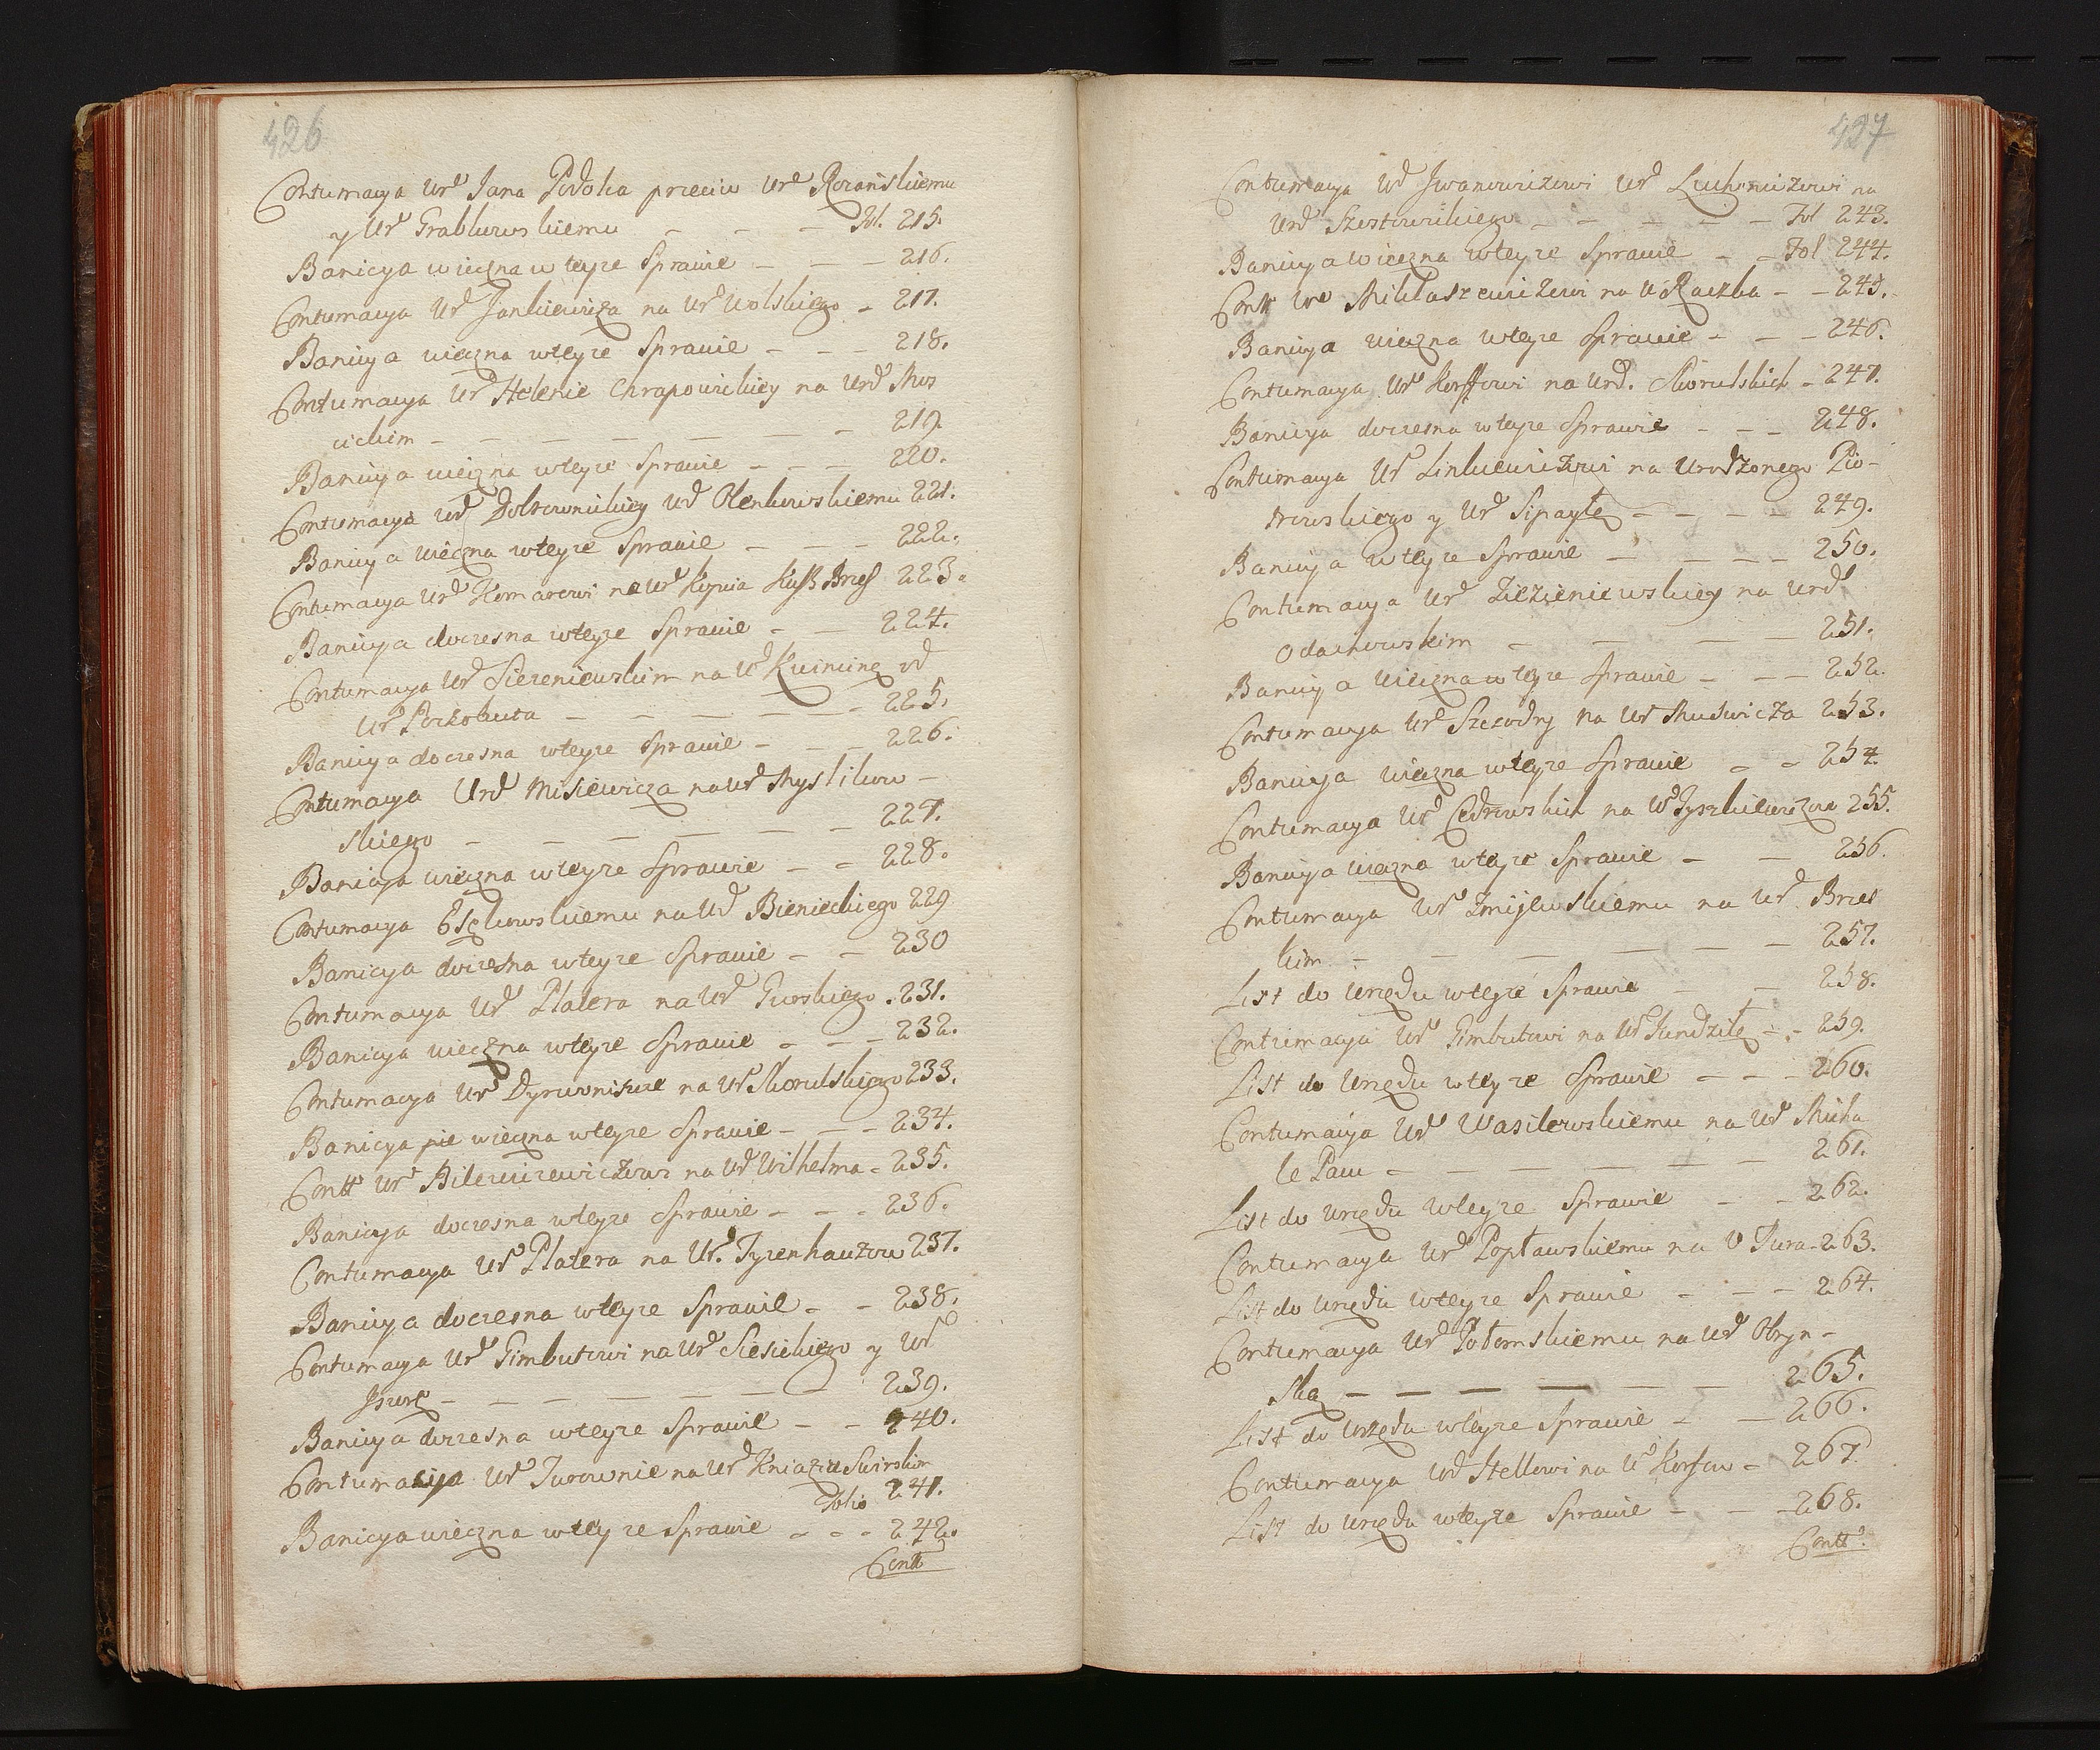 426
Contumacya Urd Jana Pidoka przeciw Urd Rozańskiemu
y Ur Grabkowskiemu — — — Fol. 215.
Banicya wieczna w teyze Sprawie — — — 216.
Contumacya Ur Jankiewicza na Ur Wolskiego — 217.
Banicya wieczna wteyze Sprawie — — — 218.
Contumacya Ur Helenie Chrapowickiey na Urd Mos
cickim — — — — — — — 219.
Banicya wieczna wteyze Sprawie — — — 220.
Contumacya Urd Dobrownickiey Urd Olenkowskiemu 221.
Banicya wieczna wteyze Sprawie — — — 222.
Contumacya Urd Komarowi na Ur Kopcia Kasz Brzes 223.
Banicya doczesna wteyze Sprawie — — 224.
Contumacya Urd Siezeniewskim na Ur Kuimine y
Ur Poczobuta — — — — — — 225.
Banicya doczesna wteyze Sprawie — — — 226.
Contumacya Urd Misiewicza na Ur Myslikow —
skiego — — — — — — 227.
Banicya wieczna wteyze Sprawie — — 228.
Contumacya Eysykowskiemu na Ur Bienieckiego 229
Banicya doczesna wteyze Sprawie — — 230
Contumacya Ur Platera na Ur Gurskiego . 231.
Banicya wieczna wteyze Sprawie — — — 232.
Contumacya Ur Dyrwoniszce na Ur Skorulskiego 233.
Banicya nie wieczna wteyze Sprawie — — — 234.
Contt Ur Bilewiczewiczowi na Ur Wilhelma — 235.
Banicya doczesna wteyze Sprawie — — — 236.
Contumacya Ur Platera na Ur. Tyzenhauzow 237.
Banicya doczesna wteyze Sprawie — — 238.
Contumacya Ur Gimbutowi na Ur Siesickiego y Ur
Iszorę — — — — — — 239.
Banicya doczesna wteyze Sprawie — — 240.
Contumacya Ur Jurownie na Ur Kniazia Swirskim
Folio 241.
Banicya wieczna wteyze Sprawie — — — 242.
Contt
427
Contumacya Ur Jwanowiczowi Ur Luchniczowi na
Urd Szostowickiego — — — — — Fol 243.
Banicya wieczna wteyze Sprawie — — Fol 244.
Contt Ur Mikłaszewiczowi na U Raczka — — 245.
Banicya wieczna wteyze Sprawie — — — 246.
Contumacya Ur Korffowi na Urd. Skorulskich — 247.
Banicya doczesna wteyze Sprawie — — — 248.
Contumacya Ur Linkiewiczowi na Urodzonego Pio-
trowskiego y Ur Sipayłę — — — — 249.
Banicya wteyze Sprawie — — — — 250.
Contumacya Ur Zizieniewskiey na Urd
Odachowskim — — — — 251.
Banicya wieczna wteyze Sprawie — — — 252.
Contumacya Ur Szczodry na Ur Muswicza 253.
Banicya wieczna wteyze Sprawie — — 254.
Contumacya Ur Cedrowskich na Ur Tyszkiewiczow 255.
Banicya wieczna wteyze Sprawie — — 256.
Contumacya Ur Zmijewskiemu na Ur Brzes
kim — — — — — — 257.
List do Urzędu wteyze Sprawie — — 258.
Contumacya Ur Gimbutowi na Ur Kundziłę — — 259.
List do Urzędu wteyze Sprawie — — — 260.
Contumacya Ur Wasilewskiemu na Ur Micha
le Paw — — — — — — 261.
List do Urzędu wteyze Sprawie — — 262.
Contumacya Ur Popławskiemu na U Jura — 263.
List do Urzędu wteyze Sprawie — — — 264.
Contumacya Ur Potomskiemu na Ur Obryn —
ską — — — — — — 265.
List do Urzędu wteyze Sprawie — — 266.
Contumacya Ur Stellowi na Ur Korfow — 267.
List do Urzędu wteyze Sprawie — — — 268.
Contt.